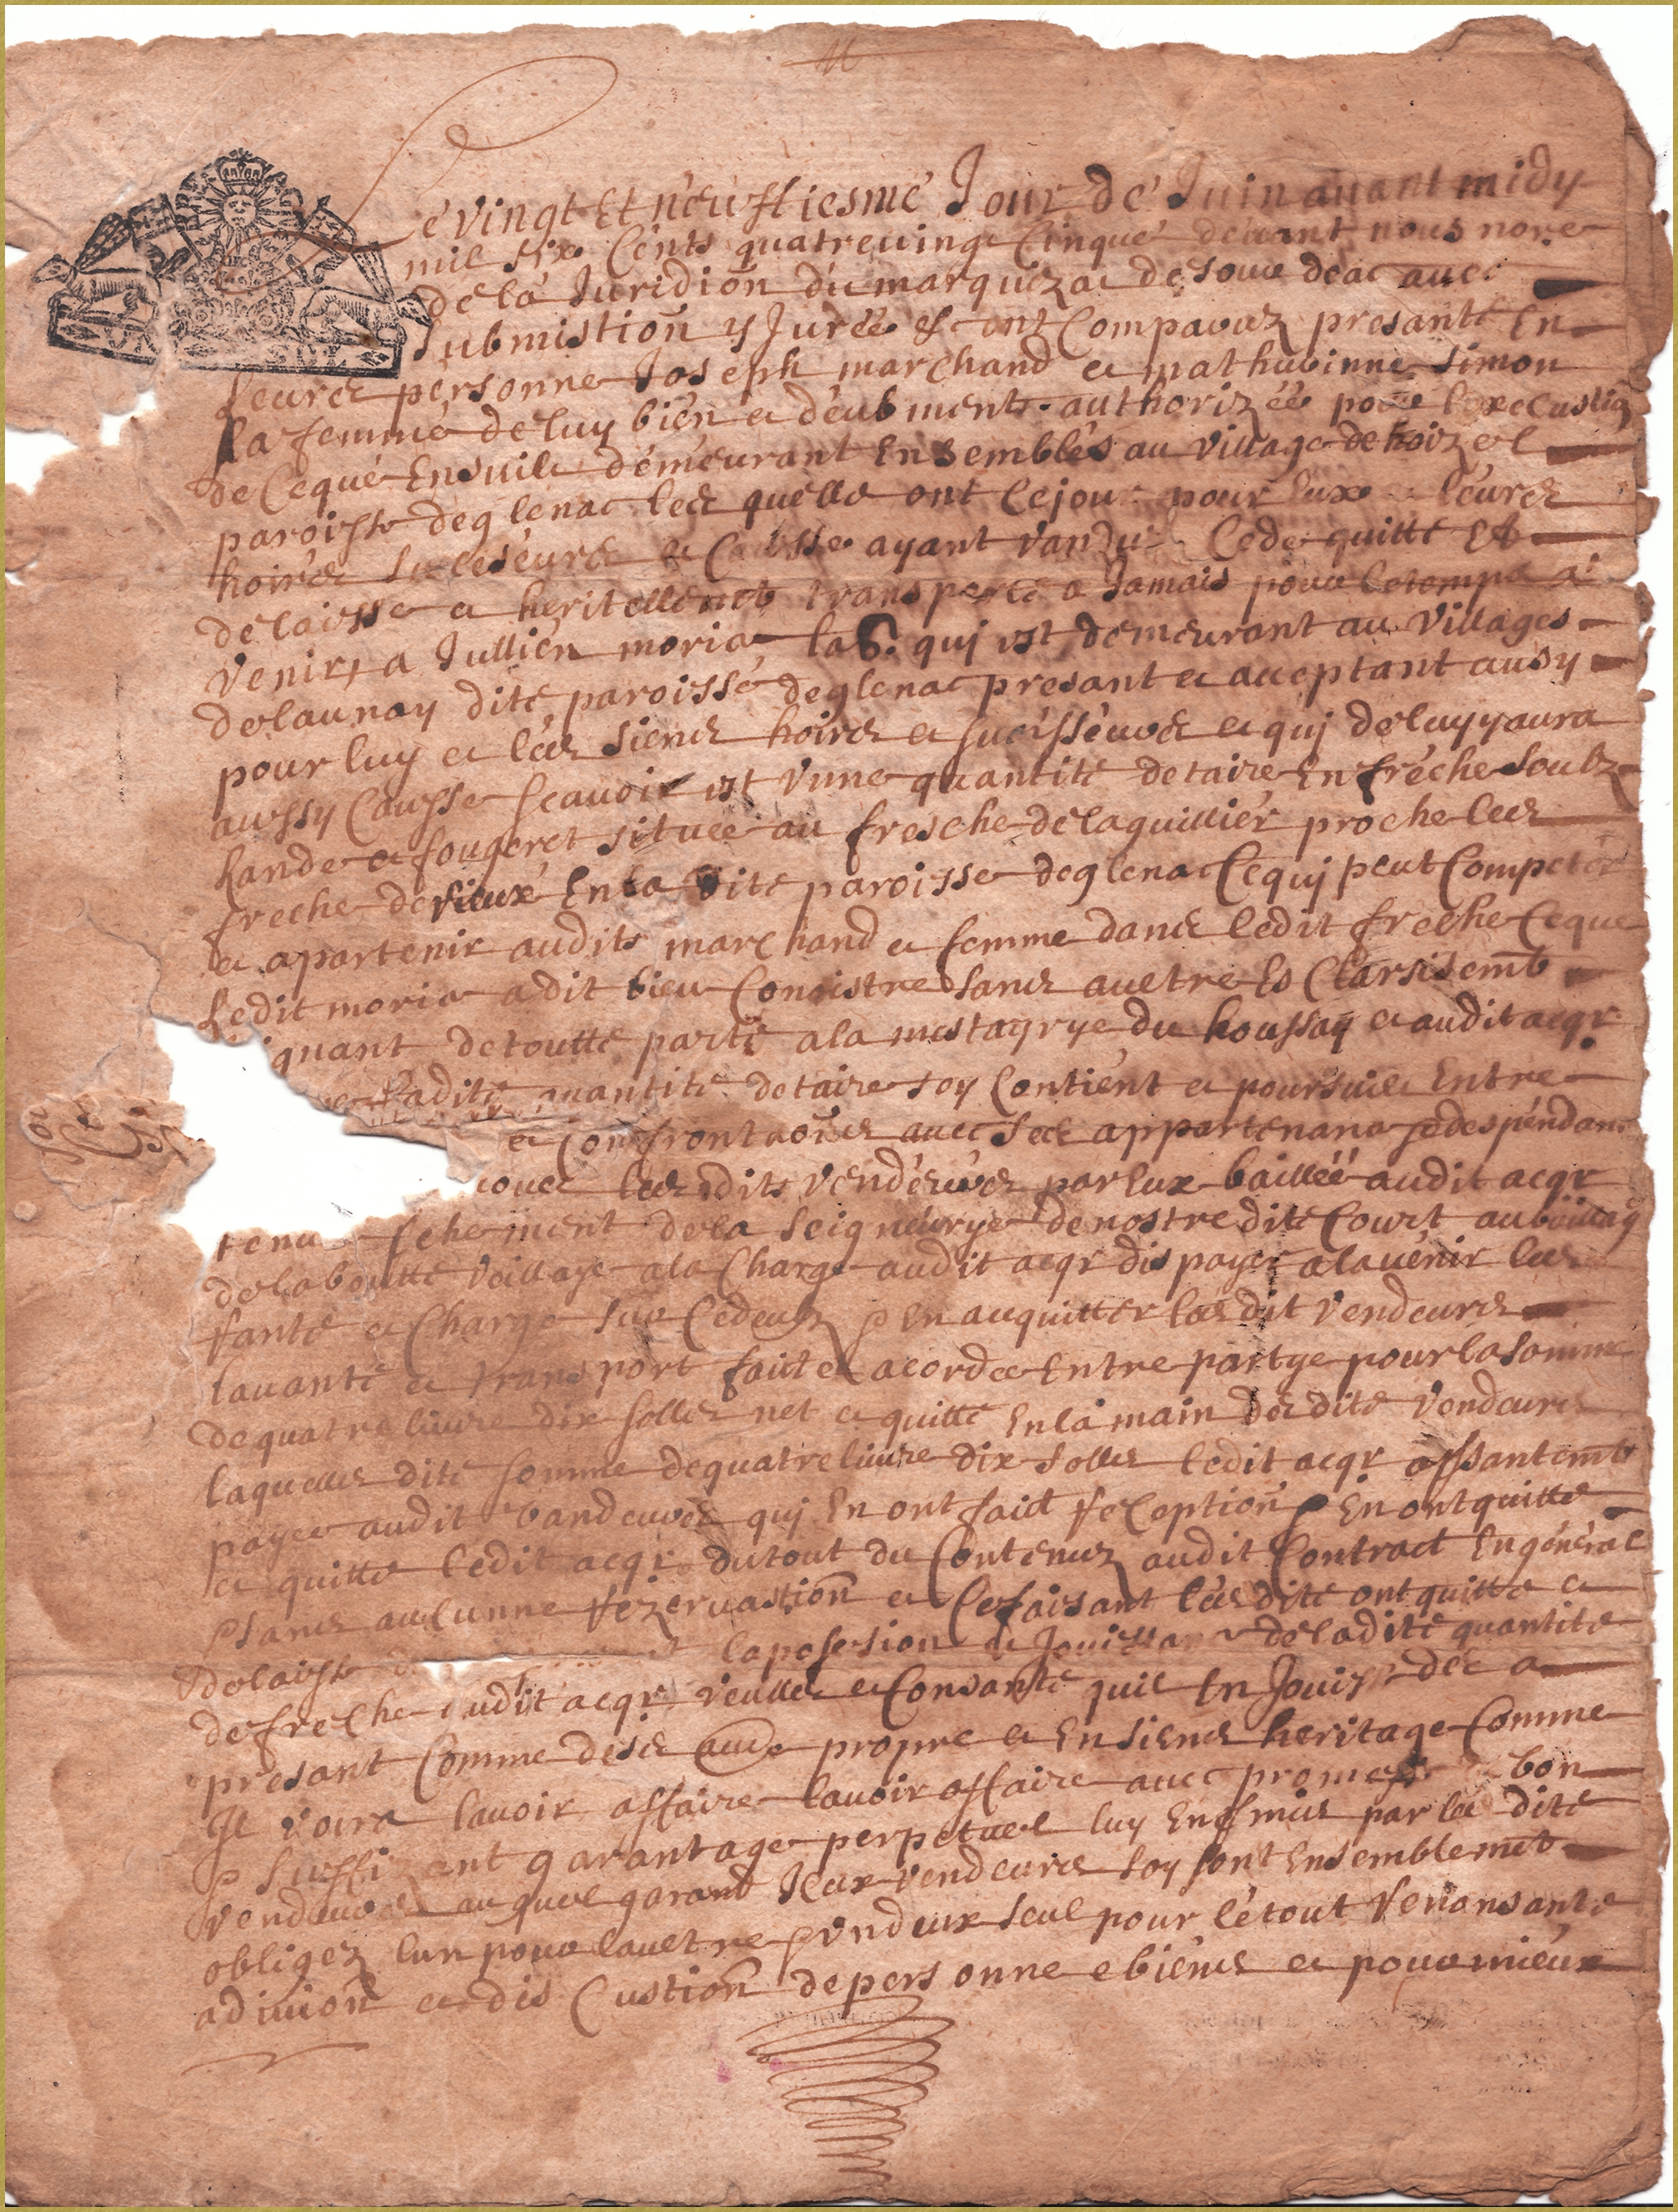 Le vingt Et neuffiesme Jour de Juin auant midy
mil six Cents quatreuingt Cinque deuant nous nore
de la Juridion du marquizac de Sourdeac auec
Submistion y Jurée &c ont Comparuz presante En
leurs personne Joseph marchand et mathurinne Simon
La femme de luy bien et deubment authorizée pour lexecustion
de Ceque Ensuile demeurant Ensembles au village de hoizel
paroisse deglenac les quelle ont Cejour pour Eux leurs
hoires Suceseurs et Causse ayant vandu Cede quitté Et
delaisse et heritellemt transporté a Jamais pour letemps a
venir, a Jullien moria la qui est demeurant au villages
delaunay dite paroisse deglenac presant et acceptant ausy
pour luy et les siens hoirs et sucisseurs et qui deluy yaura
aussy Causse scauoir est vune quantité detaire En frêche soubz
Lande et fougeret situee au fresche delaquillier proche les
freche de rieux En la dite paroisse deglenac Cequi peut Competer
et apartenir audits marchand et femme dans ledit freche Ceque
Ledit moria a dit bien Conoistre Sans auetre Es Clarsisemt
gnant detoutte parte ala mestayrye du houssay et audit acqr
Ladite quantité detaire soy Contient et poursuile Entre
et Confrontaons auec ses appartenans et despendans
les dits vendeurs par Eux baillée audit acqr
tenu chement dela Seigneurye denostre dite Court au
delaboutte veillaye ala Charge audit acqr dis payer alauenir les
rante et Charge sur Cedeuz p En aquitter les dit vendeurs
lauante et transport fait et acordee Entre partye pour la somme
dequatre liure dix solls net et quitte En la main des dite vendeurs
laquelles dite somme dequatre liuire dix solls ledit acqr
payee audit vandeurs qui En ont faict reCeption p En ont quitte
et quitte ledit acqr dutout du Contenuz audit Contract En général
p sans auCunne rezeruastion et Cefaisant les dite ont quitte et
delaisse laposesion et Jouissance deladite quantité
defreche audit acqr veulles et Consante quil En Jouisse des a
presant Comme deses autre propre et En siens heritage Comme
Il voira lauoir affaire lauoir affaire auec promesse bon
p suffizant garantage perpetuel luy En par les dite
vendeurs auquel garand Iceux vendeurs soy sont Ensemblemt
obligez lun pour lauetre p vnd eux seul pour letout renonsante
adiuion et dis Custion depersonne e biens et pour mieux